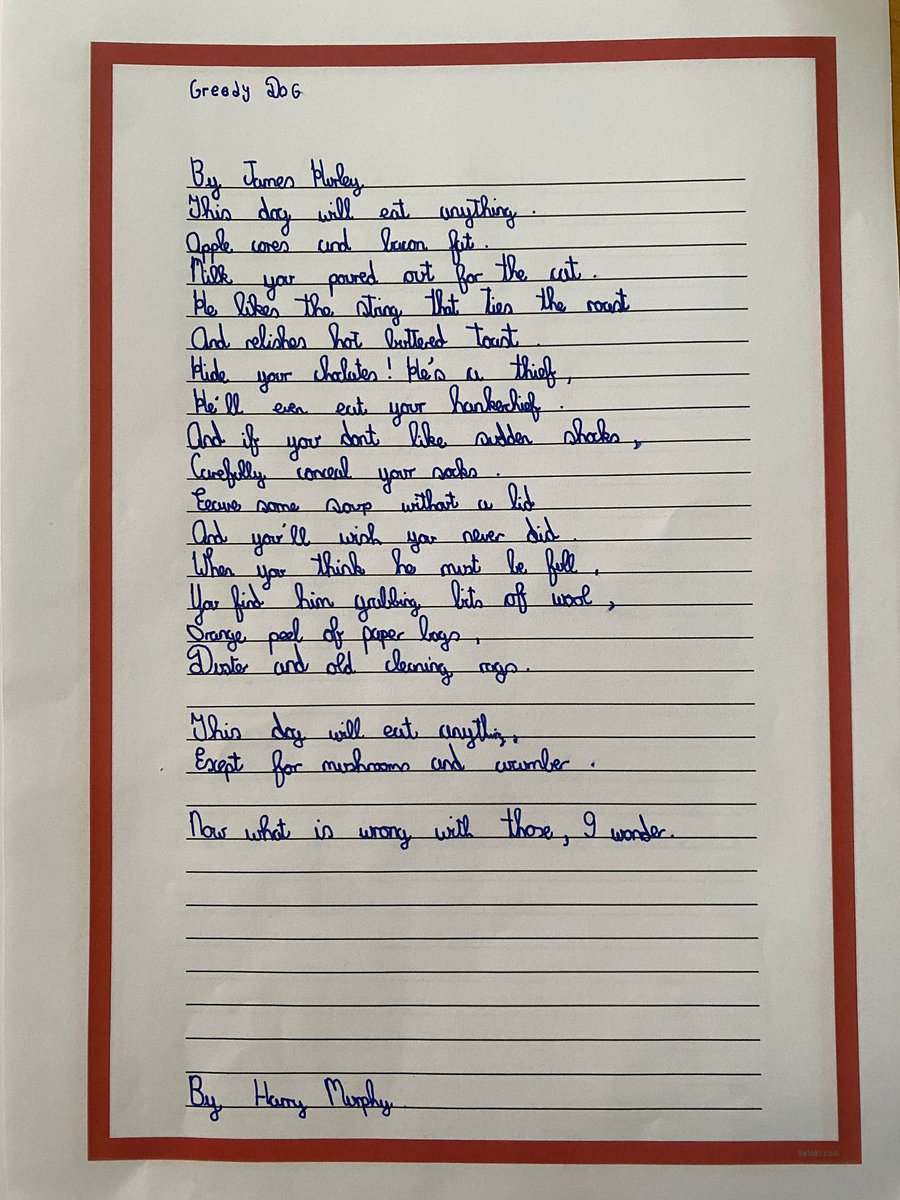 Greedy DoG
By James Hurley
This dog will eat anything.
Apple cores and bacon fat.
Milk you poured out for the cat.
He likes the string that ties the roast
And relishes hot buttered toast.
Hide your chocolates! He's a thief,
He'll even eat your hankerchief.
And if you dont like sudden shocks,
Carefully conceal your socks.
Leave some soup without a lid
And you'll wish you never did.
When you think he must be full,
You find him grabbing bits of wool,
Orange peel of paper bags,
Duster and old cleaning rags.
This dog will eat anything,
Exept for mushrooms and cucumber.
Now what is wrong with those, I wonder.
By Harry Murphy.
twinkl.com